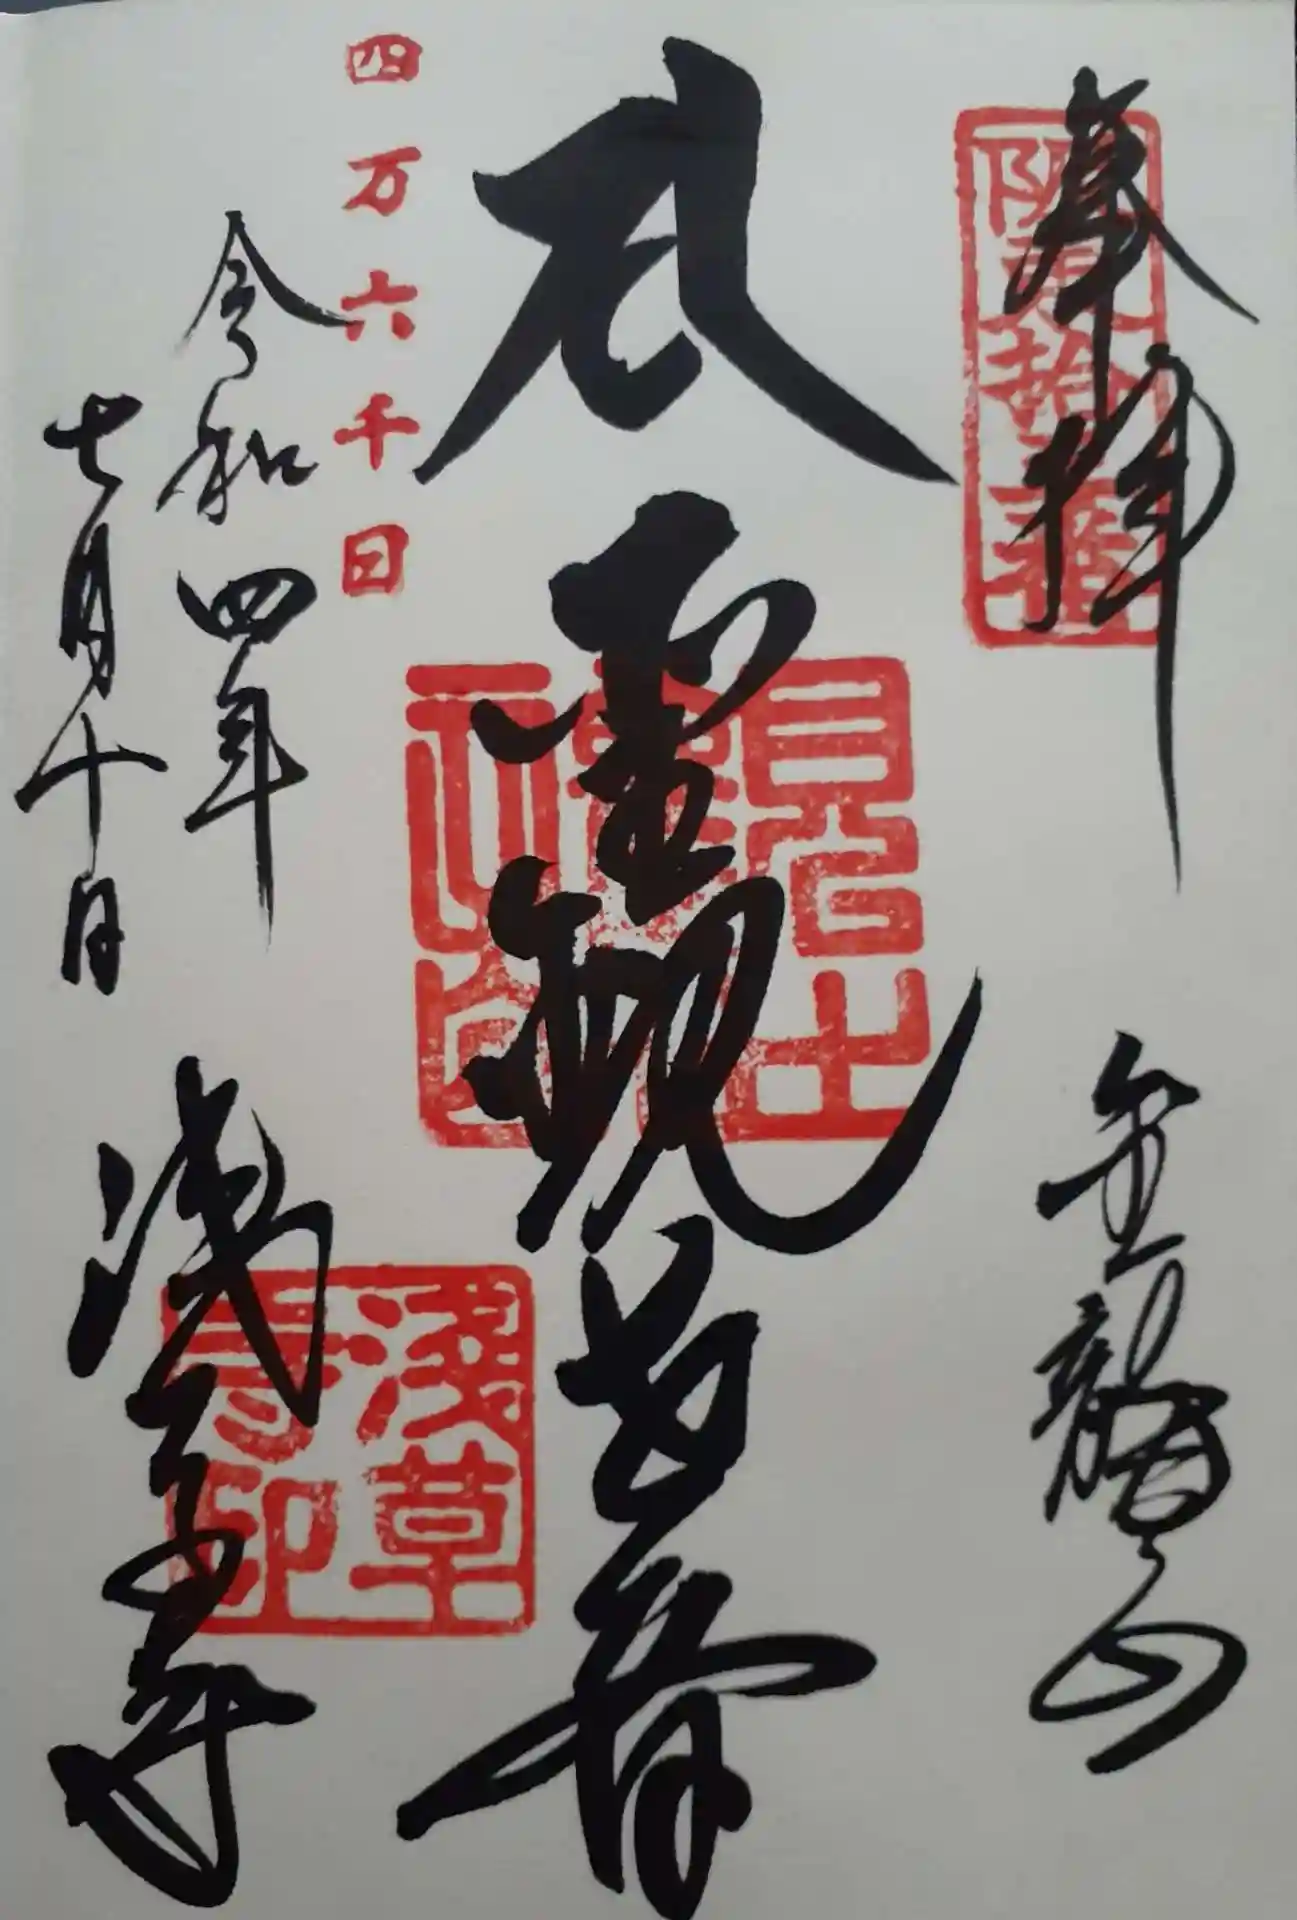 奉拝
坂東拾三番
金龍山
聖観世音
四万六千日
令和四年
七月十日
浅草寺
浅草
寺印